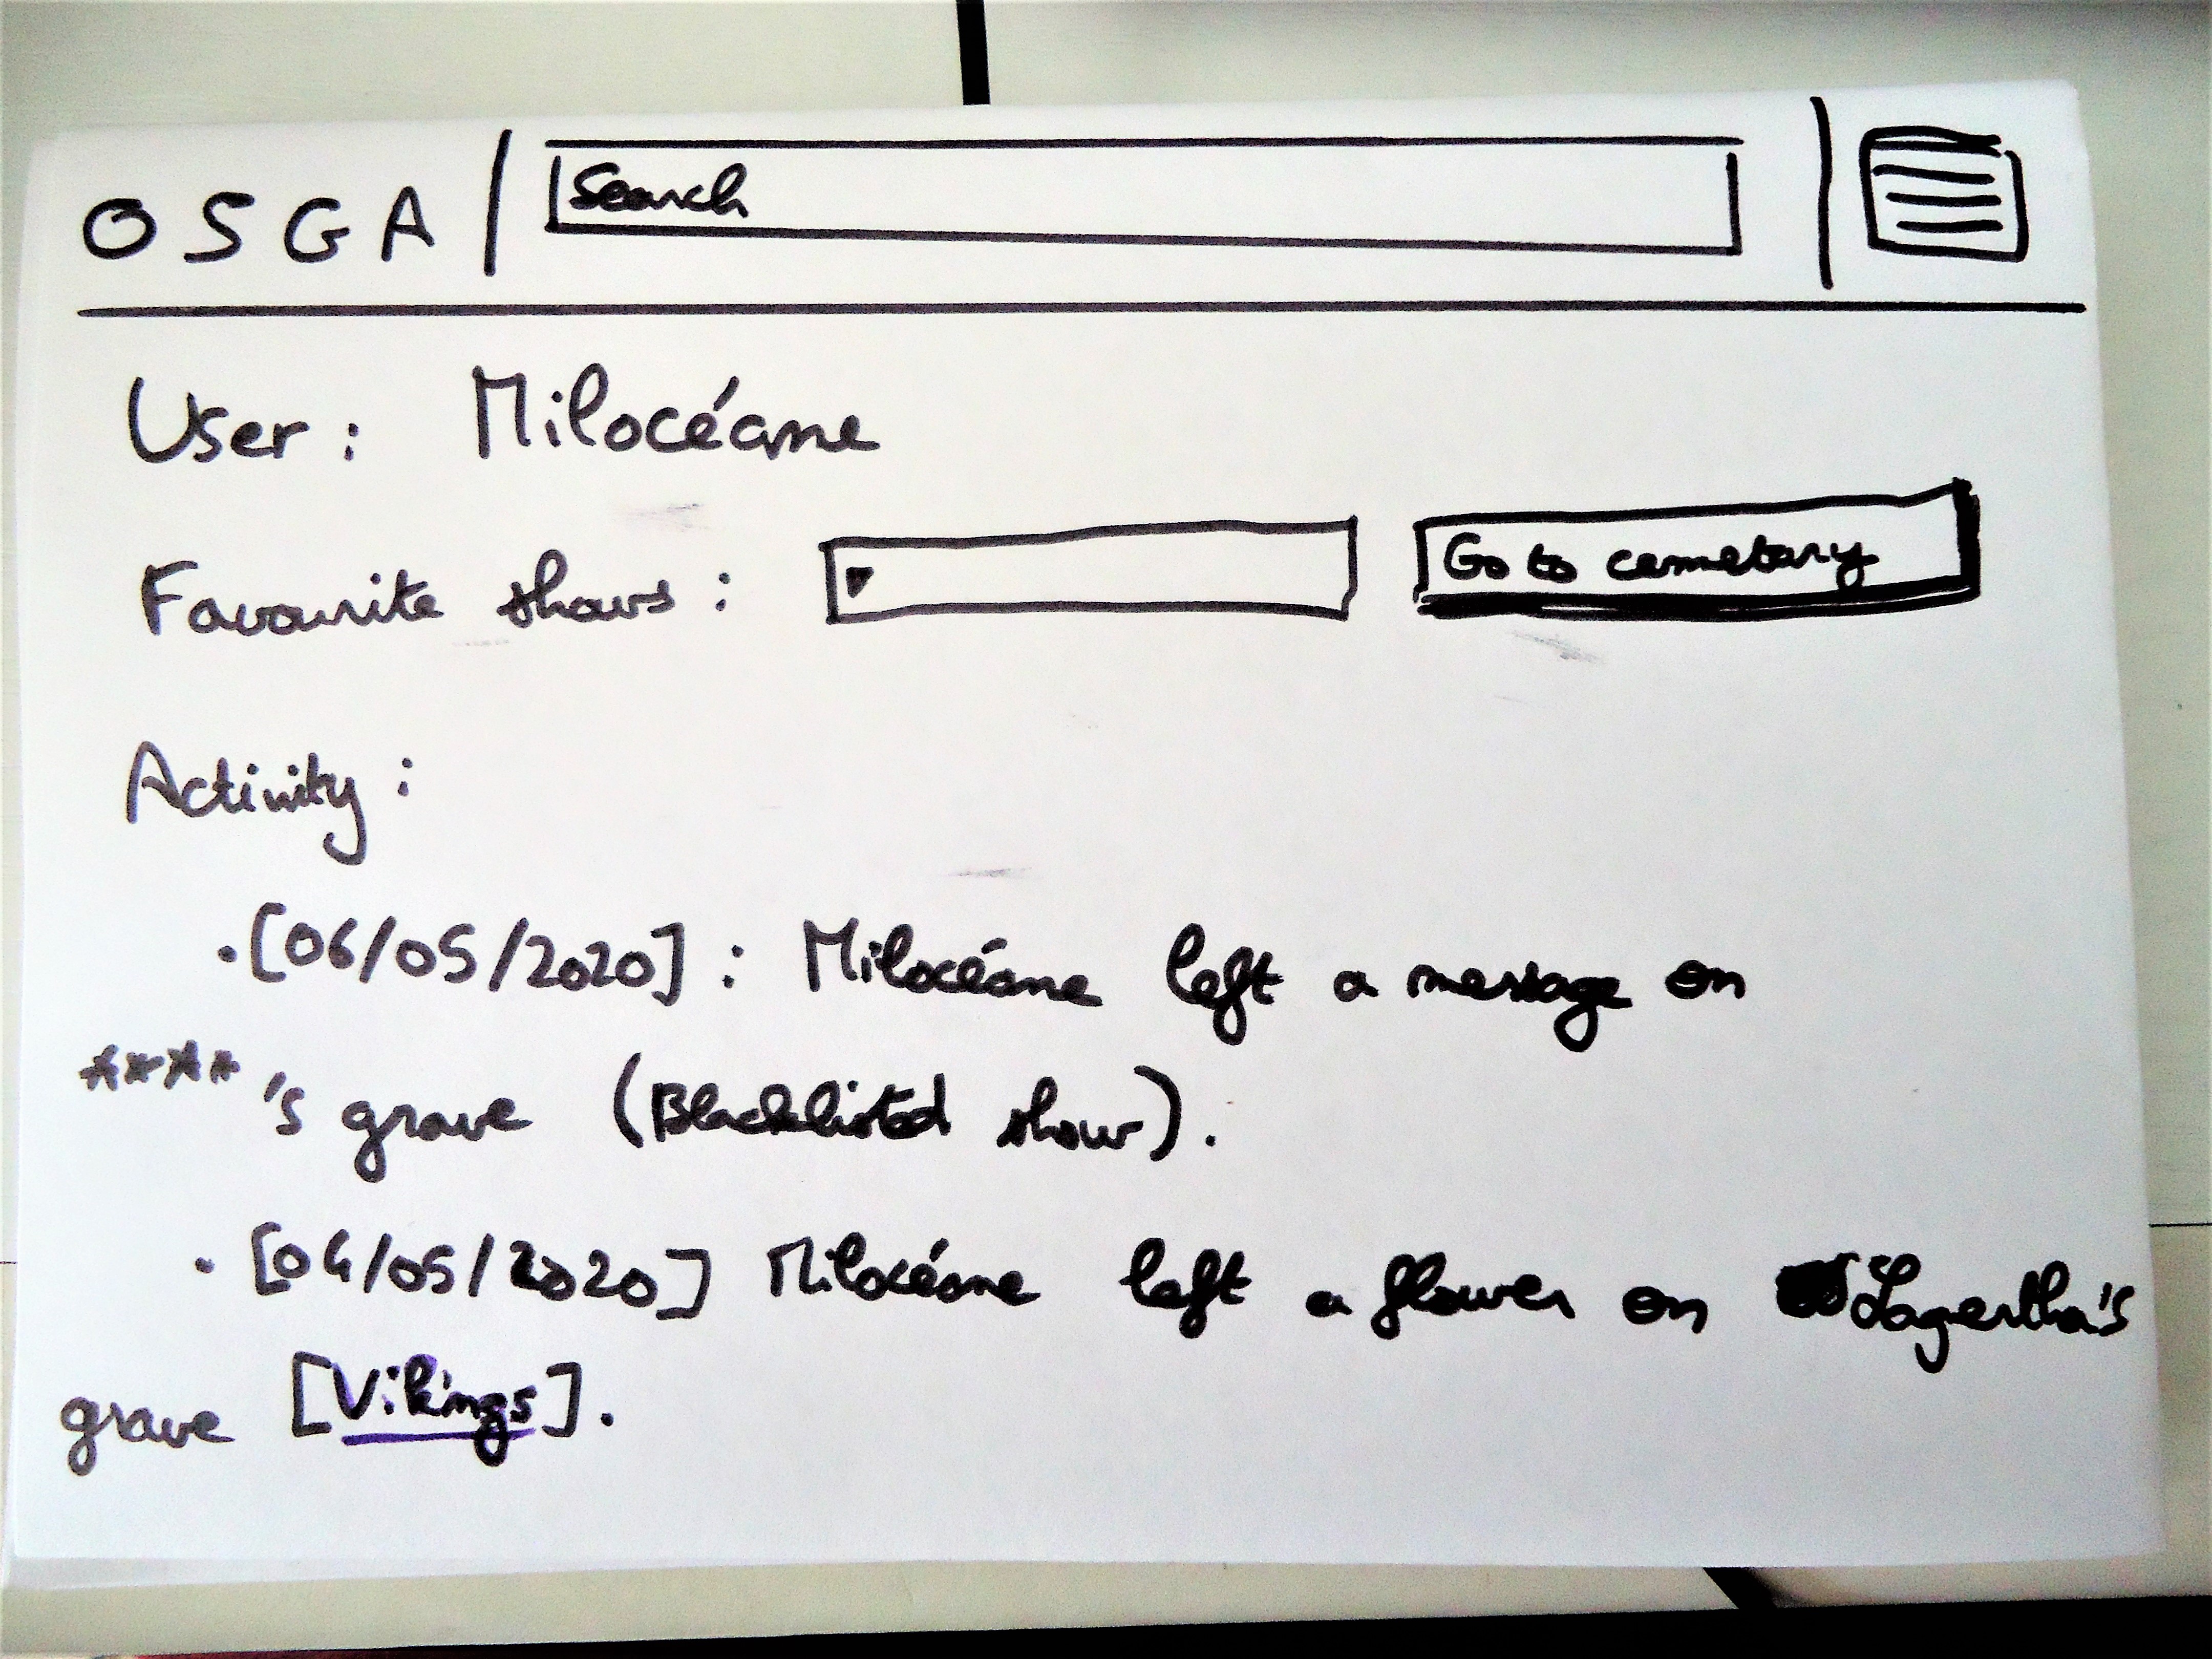 OSGA | Search
User : Milocéane
Favourite shows : Go to cemetary
Activity :
. [06/05/2020] : Milocéane left a message on
****'s grave (Blacklisted show).
. [04/05/2020] Milocéane left a flower on Lagertha's
grave [Vikings].